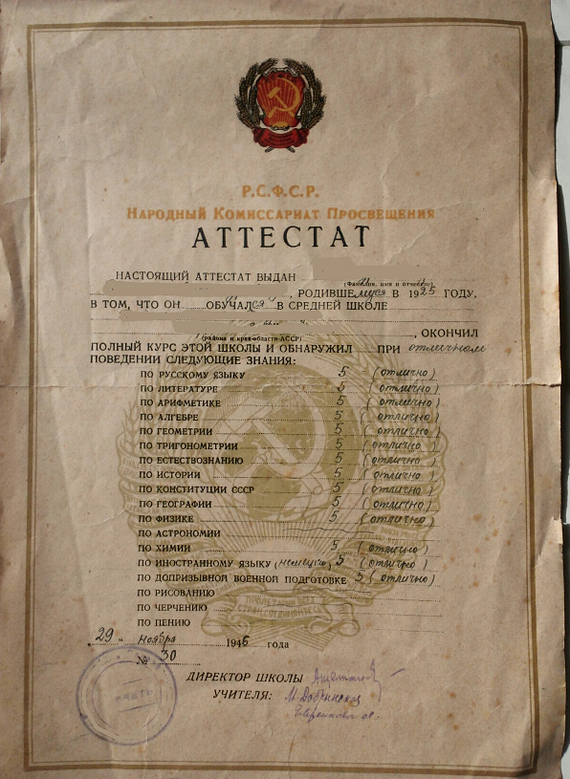 Р.С.Ф.С.Р.
НАРОДНЫЙ КОМИССАРИАТ ПРОСВЕЩЕНИЯ
АТТЕСТАТ
НАСТОЯЩИЙ АТТЕСТАТ ВЫДАН
(Фамилия, имя и отчество)
, РОДИВШЕмуся В 1925 ГОДУ,
В ТОМ, ЧТО ОН ОБУЧАЛся В СРЕДНЕЙ ШКОЛЕ
, ОКОНЧИЛ
(района и края-области-АССР)
ПОЛНЫЙ КУРС ЭТОЙ ШКОЛЫ И ОБНАРУЖИЛ ПРИ отличном
ПОВЕДЕНИИ СЛЕДУЮЩИЕ ЗНАНИЯ:
ПО РУССКОМУ ЯЗЫКУ 5 (отлично)
ПО ЛИТЕРАТУРЕ 5 (отлично)
ПО АРИФМЕТИКЕ 5 (отлично)
ПО АЛГЕБРЕ 5 (отлично)
ПО ГЕОМЕТРИИ 5 (отлично)
ПО ТРИГОНОМЕТРИИ 5 (отлично)
ПО ЕСТЕСТВОЗНАНИЮ 5 (отлично)
ПО ИСТОРИИ 5 (отлично)
ПО КОНСТИТУЦИИ СССР 5 (отлично)
ПО ГЕОГРАФИИ 5 (отлично)
ПО ФИЗИКЕ 5 (отлично)
ПО АСТРОНОМИИ
ПО ХИМИИ 5 (отлично)
ПО ИНОСТРАННОМУ ЯЗЫКУ (немецкий) 5 (отлично)
ПО ДОПРИЗЫВНОЙ ВОЕННОЙ ПОДГОТОВКЕ 5 (отлично)
ПО РИСОВАНИЮ
ПРОЛЕТАРИИ ВСЕХ
СТРАН, СОЕДИНЯЙТЕСЬ!
ПО ЧЕРЧЕНИЮ
ПО ПЕНИЮ
"29" ноября 1946 года
№ 30
ДИРЕКТОР ШКОЛЫ
УЧИТЕЛЯ: М. Добринская